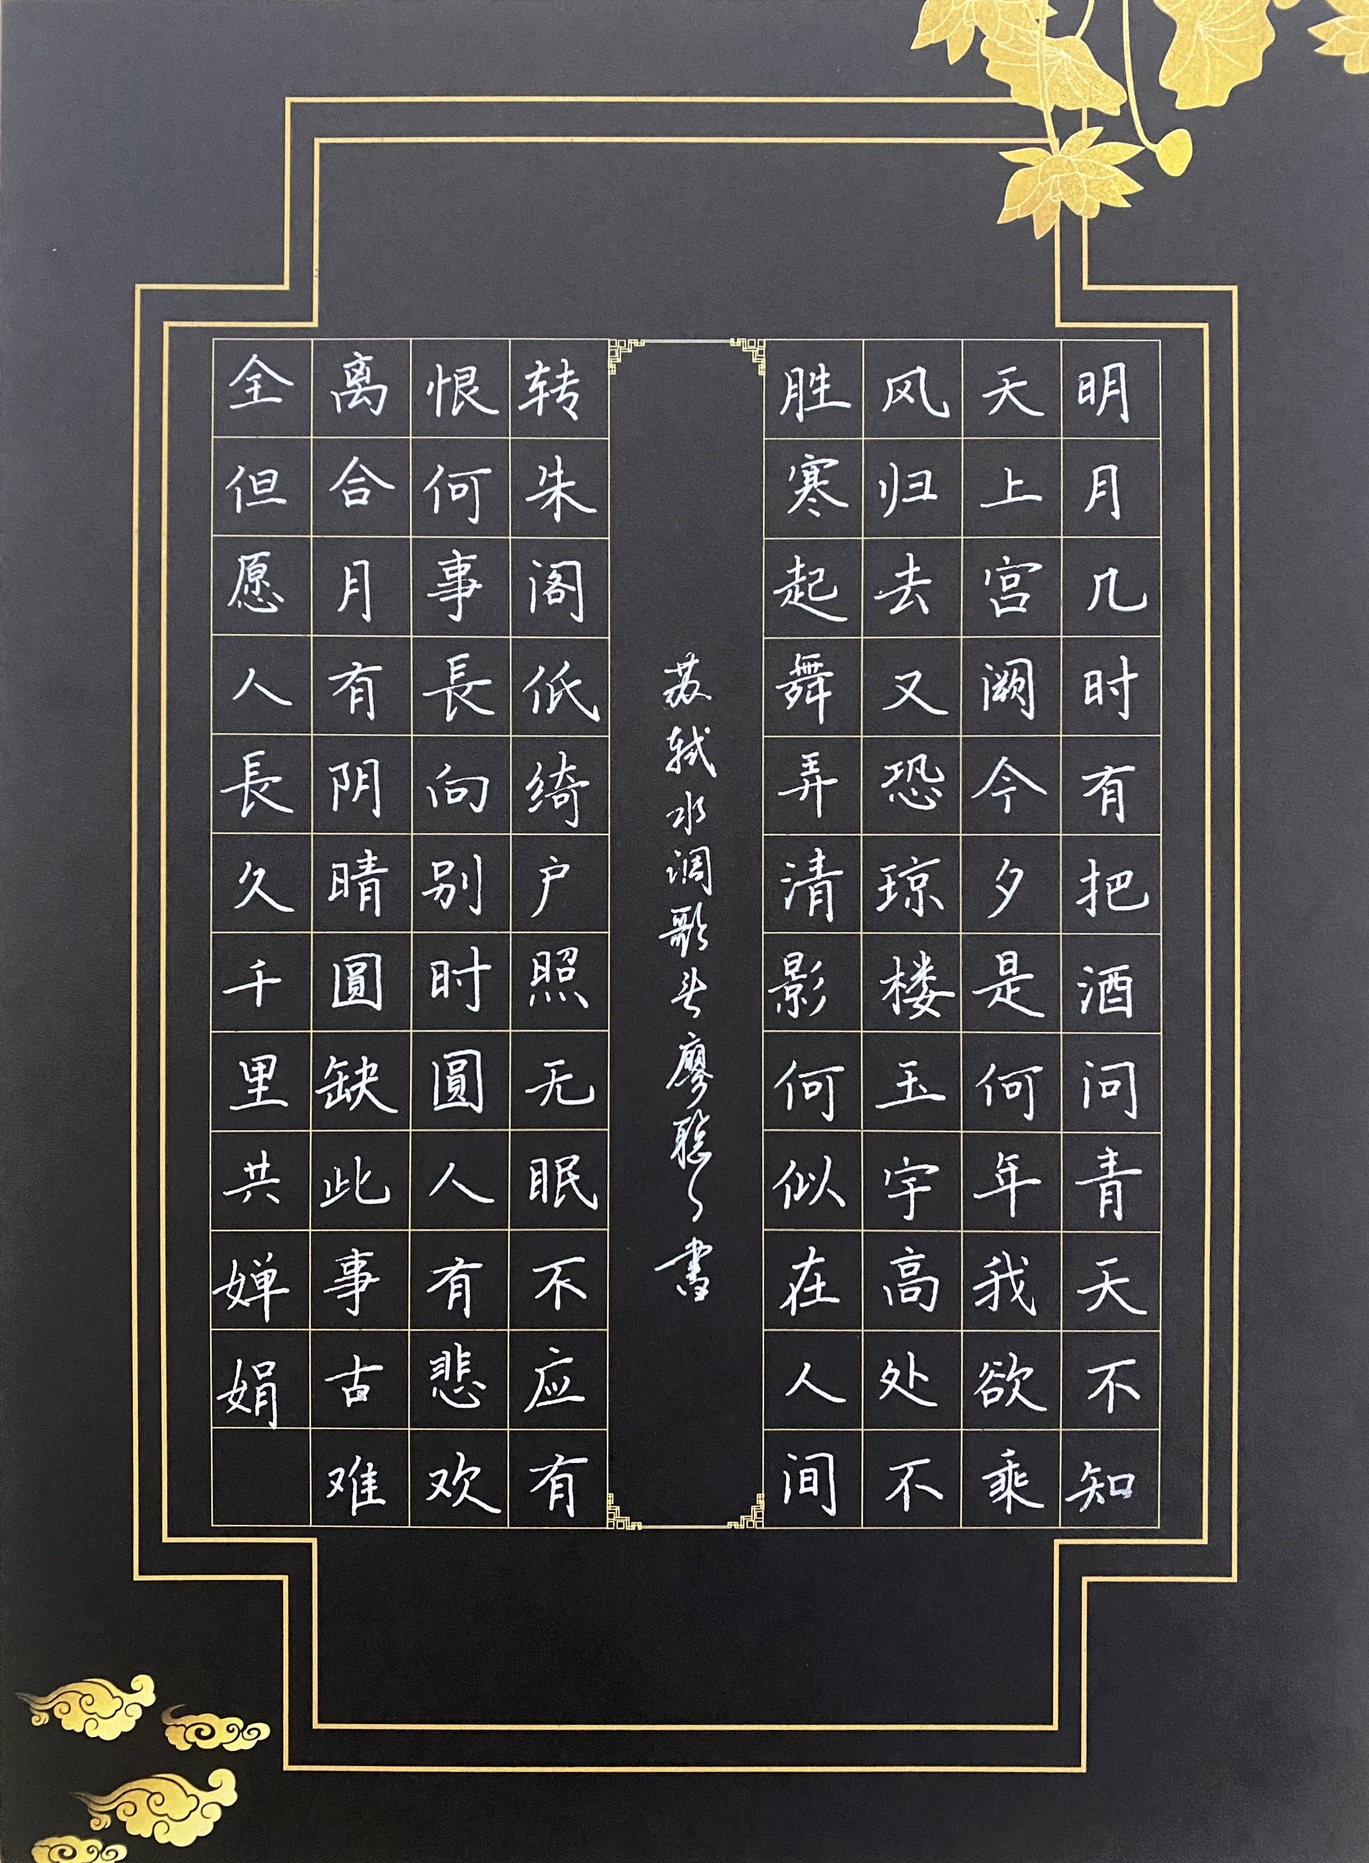 明月几时有把酒问青天不知
天上宫阙今夕是何年我欲乘
风归去又恐琼楼玉宇高处不
胜寒起舞弄清影何似在人间
转朱阁低绮户照无眠不应有
恨何事長向别时圓人有悲欢
离合月有阴晴圓缺此事古难
全但愿人長久千里共婵娟
苏轼水调歌头廖聪〻書